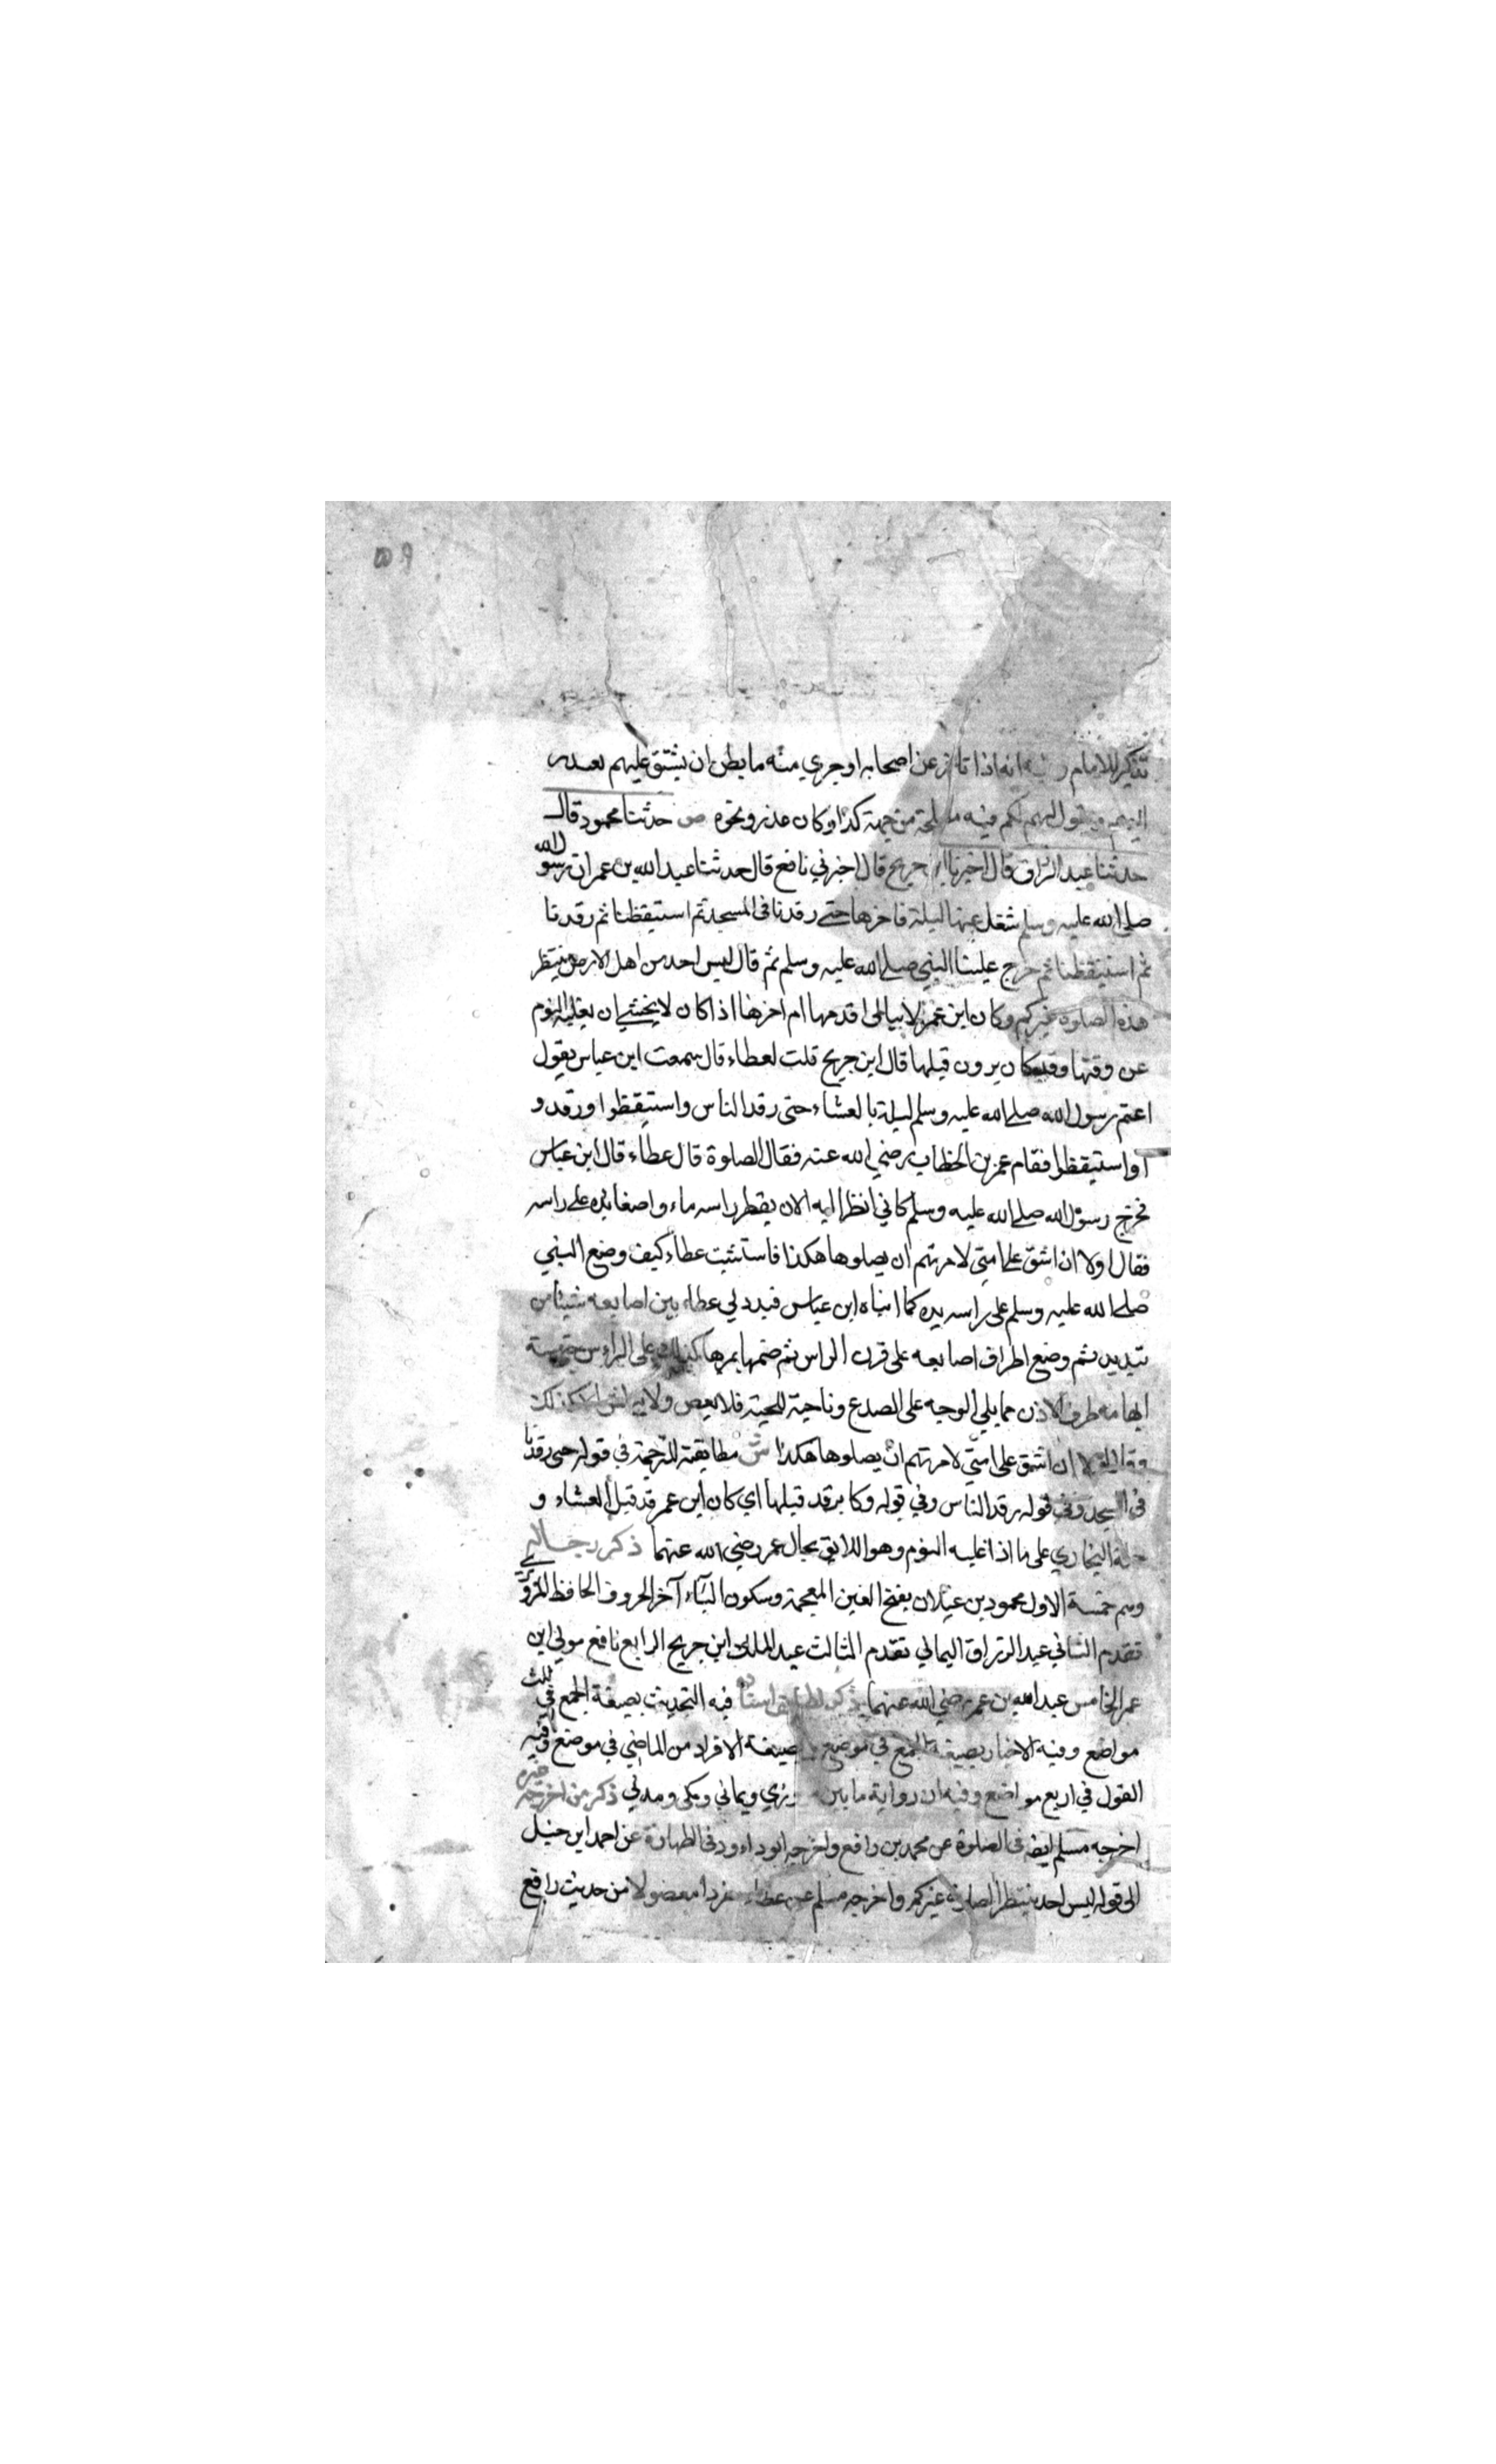 ٥٩
تذكير للامام وفيه انه اذا تاخر عن اصحابه او جري منه ما يظن ان يشق عليهم يعتذر
اليهم ويقول لهم لكم فيه مصلحة من جهة كذا وكان عذر ونحوه ص حدثنا محمود قال
حدثنا عبد الرزاق قال اخبرنا ابن جريج قال اخبرني نافع قال حدثنا عبد الله بن عمر ان رسول الله
صلى الله عليه وسلم شغل عنها ليلة فاخرها حتى رقدنا فى المسجد ثم استيقظنا ثم رقدنا
ثم استيقظنا ثم خرج علينا النبي صلى الله عليه وسلم ثم قال ليس احد من اهل الارض ينتظر
هذه الصلوة غيركم وكان ابن عمر لا يبالي اقدمها ام اخرها اذا كان لا يخشي ان يغلبه النوم
عن وقتها وقد كان يرون قبلها قال ابن جريج قلت لعطاء قال سمعت ابن عباس يقول
اعتم رسول الله صلى الله عليه وسلم ليلة بالعشاء حتى رقد الناس واستيقظوا ورقدو
ا واستيقظوا فقام عمر بن الخطاب رضي الله عنه فقال الصلوة قال عطاء قال ابن عباس
فخرج رسول الله صلى الله عليه وسلم كاني انظر اليه الان يقطر راسه ماء واضعا يده على راسه
فقال لولا ان اشق على امتي لامرتهم ان يصلوها هكذا فاستثبت عطاء كيف وضع النبي
صلى الله عليه وسلم على راسه يده كما انباه ابن عباس فبدد لي عطاء بين اصابعه شيئا من
تبديد ثم وضع اطراف اصابعه على قرن الراس ثم ضمها يمرها كذلك على الراس حتى مست
ابهامه طرف الاذن مما يلي الوجه على الصدع وناحية اللحية فلا يعصر ولا يبطش الا كذلك
وقال لولا ان اشق على امتي لامرتهم ان يصلوها هكذا ش مطابقته للترجمة في قوله حتى رقدنا
فى المسجد وفي قوله رقد الناس وفي قوله وكا يرقد قبلها اي كان ابن عمر قد قبل العشاء و
حمله البخاري على ما اذا غلبه النوم وهو اللايق بحال عمر رضي الله عنهما ذكر رجاله
وهم خمسة الاول محمود بن غيلان بفتح الغين المعجمة وسكون الياء آخر الحروف الحافظ المروزي
تقدم الثاني عبد الرزاق اليماني تقدم الثالث عبد الملك ابن جريج الرابع نافع مولي ابن
عمر الخامس عبد الله بن عمر رضي الله عنهما ذكر لطايف اسناده فيه التحديث بصيغة الجمع في ثلث
مواضع وفيه الاخبار بصيغة الجمع في موضع وبصيغة الافراد من الماضي في موضع وفيه
القول في اربع مواضع وفيه ان رواية ما بين مروزي ويماني ومكي ومدني ذكر من اخرجه غيره
اخرجه مسلم ايضا فى الصلوة عن محمد بن رافع واخرجه ابو داوود فى الطهارة عن احمد ابن حنبل
الى قوله ليس احد ينتظر الصلوة غيركم واخرجه مسلم عن عطاء مفردا مفصولا من حديث رافع